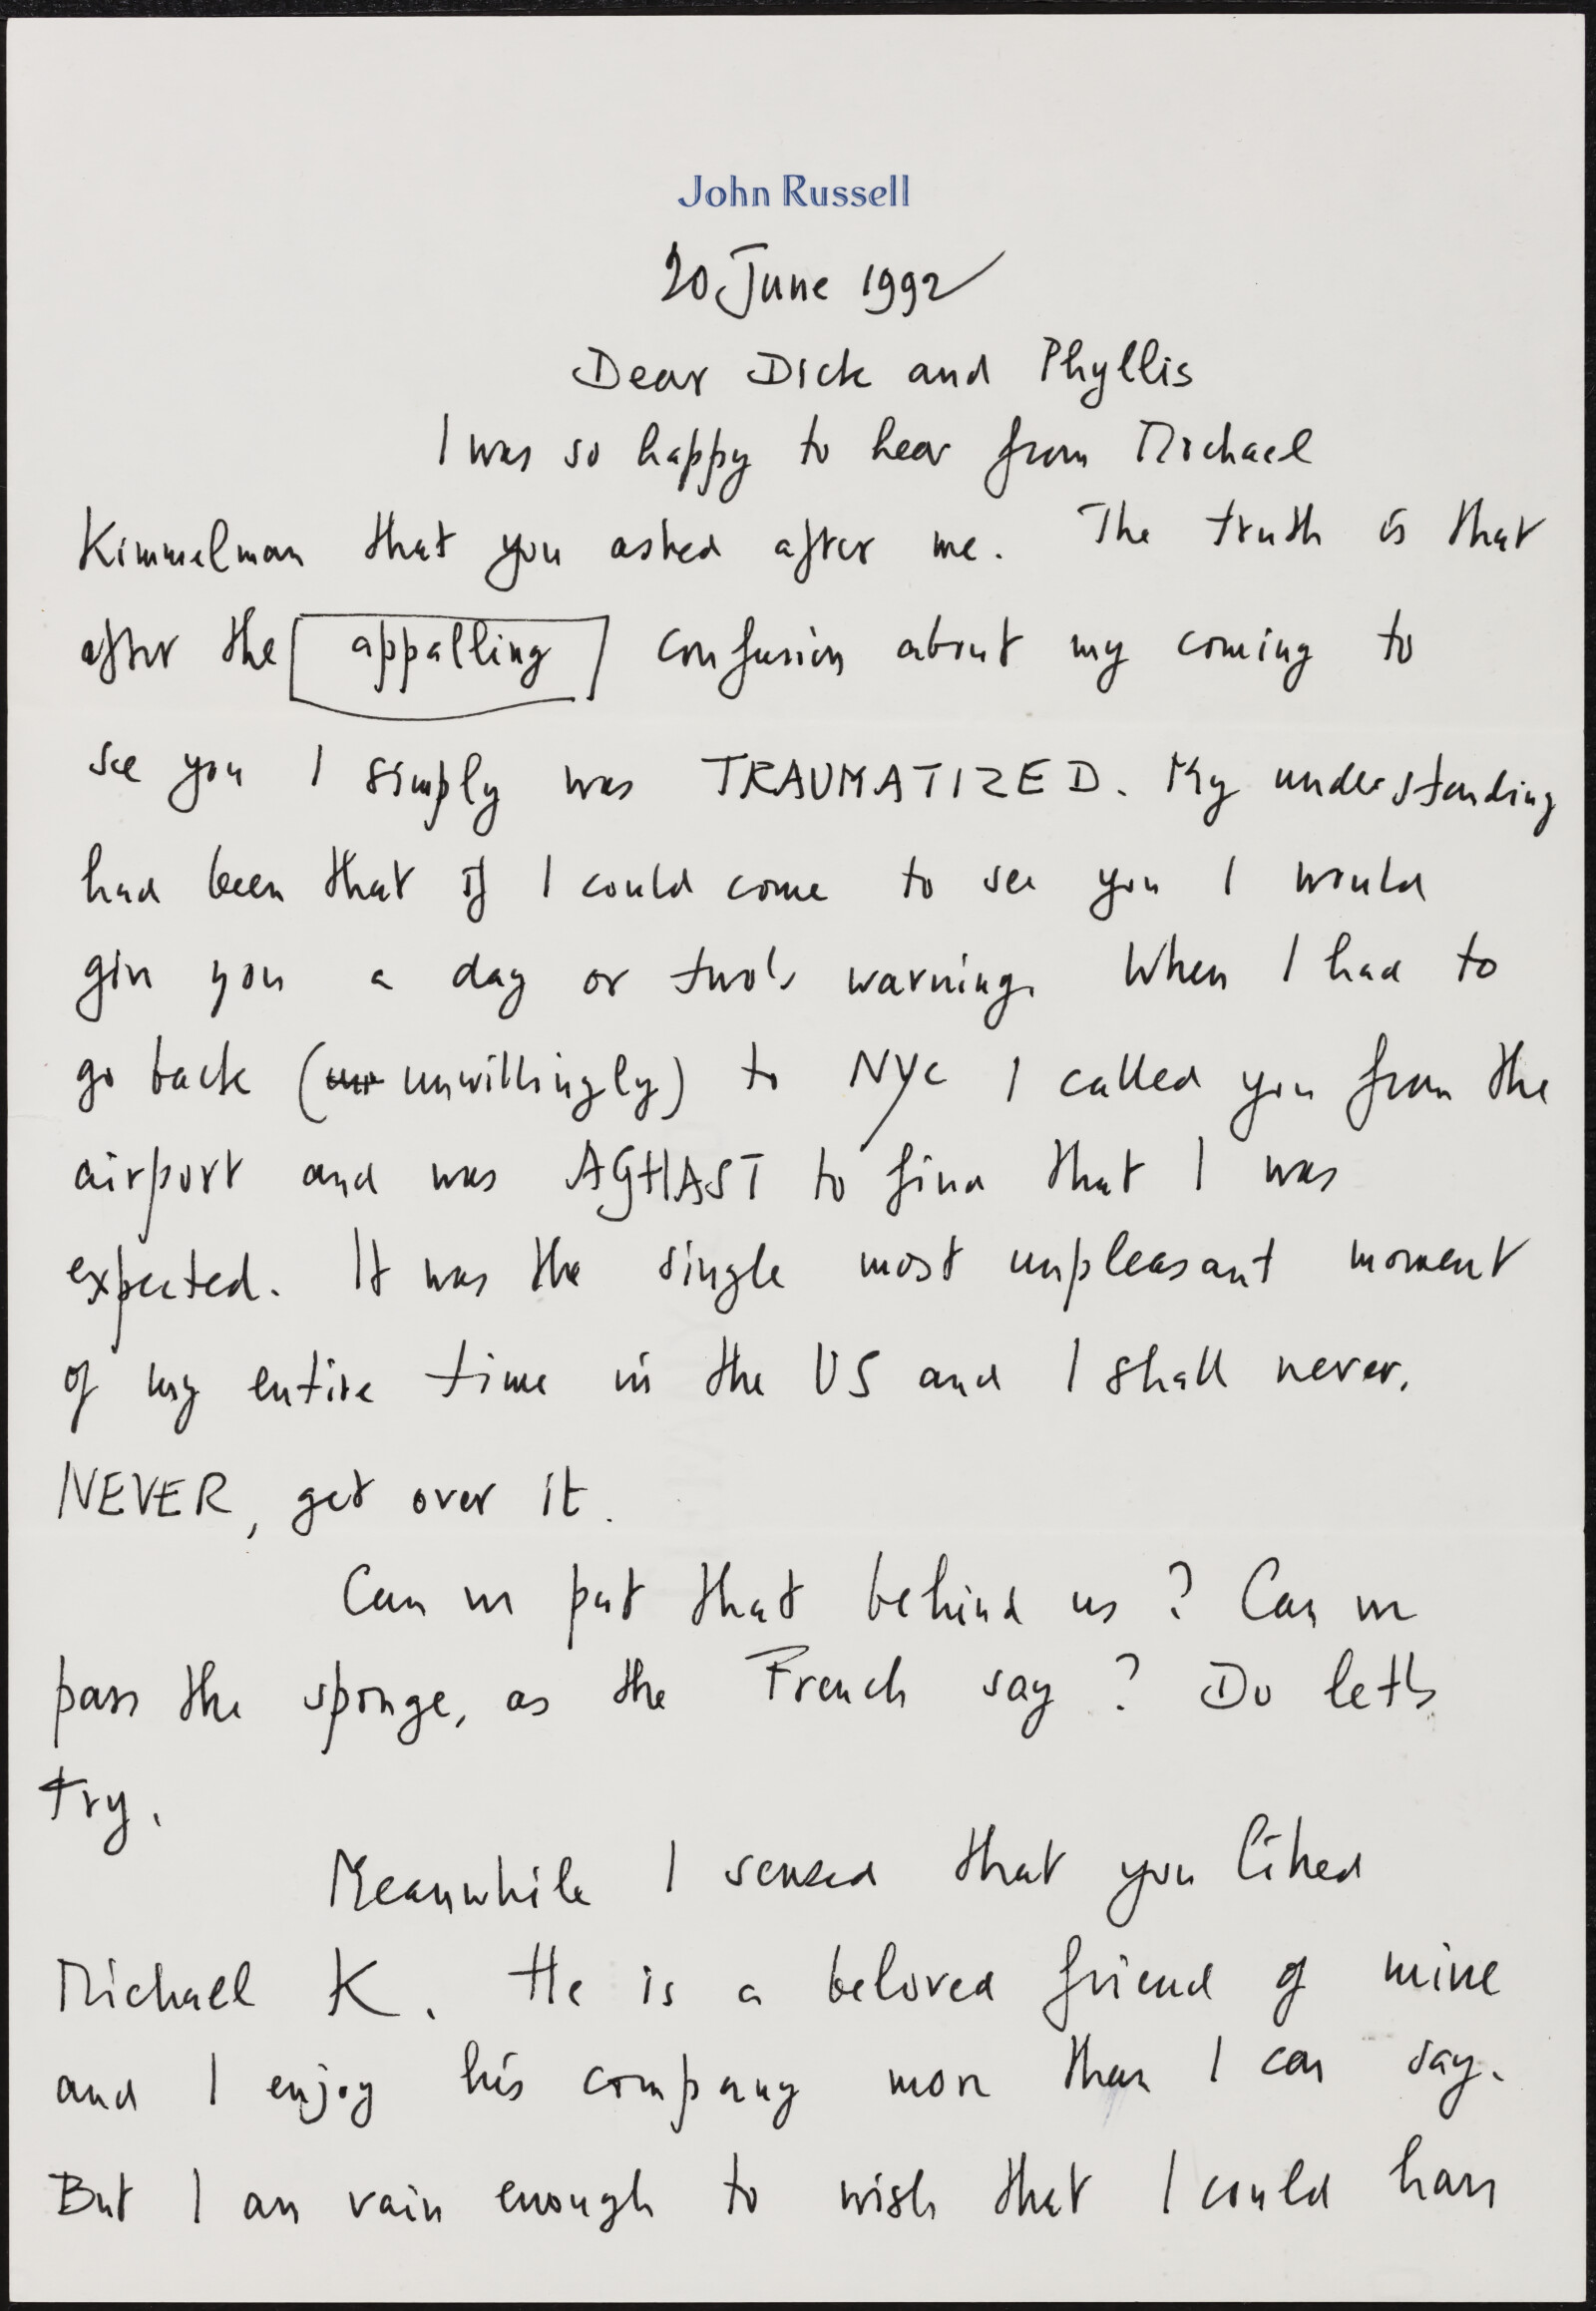 John Russell
20 June 1992
Dear Dick and Phyllis
I was so happy to hear from Michael
Kimmelman that you asked after me. The truth is that
after the appalling confusion about my coming to
see you I simply was TRAUMATIZED. My understanding
had been that if I could come to see you I would
give you a day or two's warning. When I had to
go back (unwillingly) to NYC I called you from the
airport and was AGHAST to find that I was
expected. It was the single most unpleasant moment
of my entire time in the US and I shall never,
NEVER, get over it.
Can we put that behind us? Can we
pass the sponge, as the French say? Do let's
try.
Meanwhile I sensed that you liked
Michael K. He is a beloved friend of mine
and I enjoy his company more than I can say.
But I am vain enough to wish that I could have